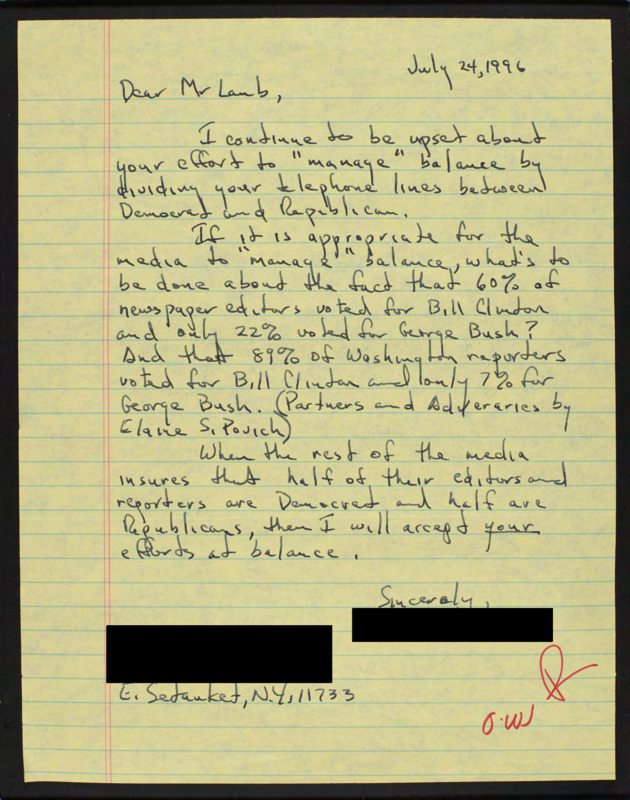 July 24, 1996
Dear Mr Lamb,
I continue to be upset about
your effort to "manage" balance by
dividing your telephone lines between
Democrat and Republican.
If it is appropriate for the
media to "manage" balance, what's to
be done about the fact that 60% of
newspaper editors voted for Bill Clinton
and only 22% voted for George Bush?
And that 89% of Washington reporters
voted for Bill Clinton and only 7% for
George Bush. (Partners and Adveraries by
Elaine S. Povich)
When the rest of the media
insures that half of their editors and
reporters are Democrat and half are
Republicans, then I will accept your
efforts at balance.
Sincerely,
E. Setauket, N.Y. 11733
O.W.